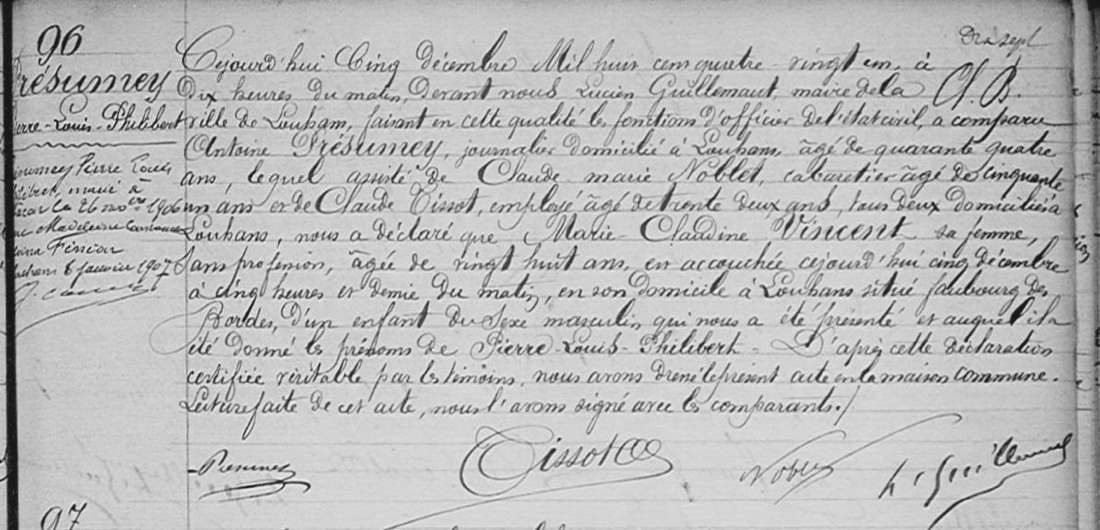 96
Présumey
Pierre-Louis-Philibert
Présumey Pierre Louis
marié à
le 26 nobre 1906
Madeleine
6 janvier 1907
Dix sept
Cejourd'hui Cinq décembre Mil huit cent quatre-vingt un, à
Dix heures du matin, Devant nous Lucien Guillemaut, maire de la
ville de Louhans, faisant en cette qualité les fonctions d'officier de l'état civil, a comparu
Antoine Présumey, journalier domicilié à Louhans, âgé de quarante quatre
ans, lequel assisté de Claude marie Noblet, cabaretier âgé de cinquante
un ans et de Claude Tissot, employé âgé de trente deux ans, tous deux domiciliés à
Louhans, nous a déclaré que Marie-Claudine Vincent sa femme,
sans profession, âgée de vingt huit ans, est accouchée cejourd'hui cinq décembre
à cinq heures et demie du matin, en son domicile à Louhans situé faubourg des
Bordes, D'un enfant du sexe masculin qui nous a été présenté et auquel il a
été donné les prénoms de Pierre-Louis-Philibert - D'après cette déclaration
certifiée véritable par les témoins, nous avons dressé le présent acte en la maison commune.
Lecture faite de cet acte, nous l'avons signé avec les comparants./
Présumey
Tissot
Noblet
L. Guillemaut
97